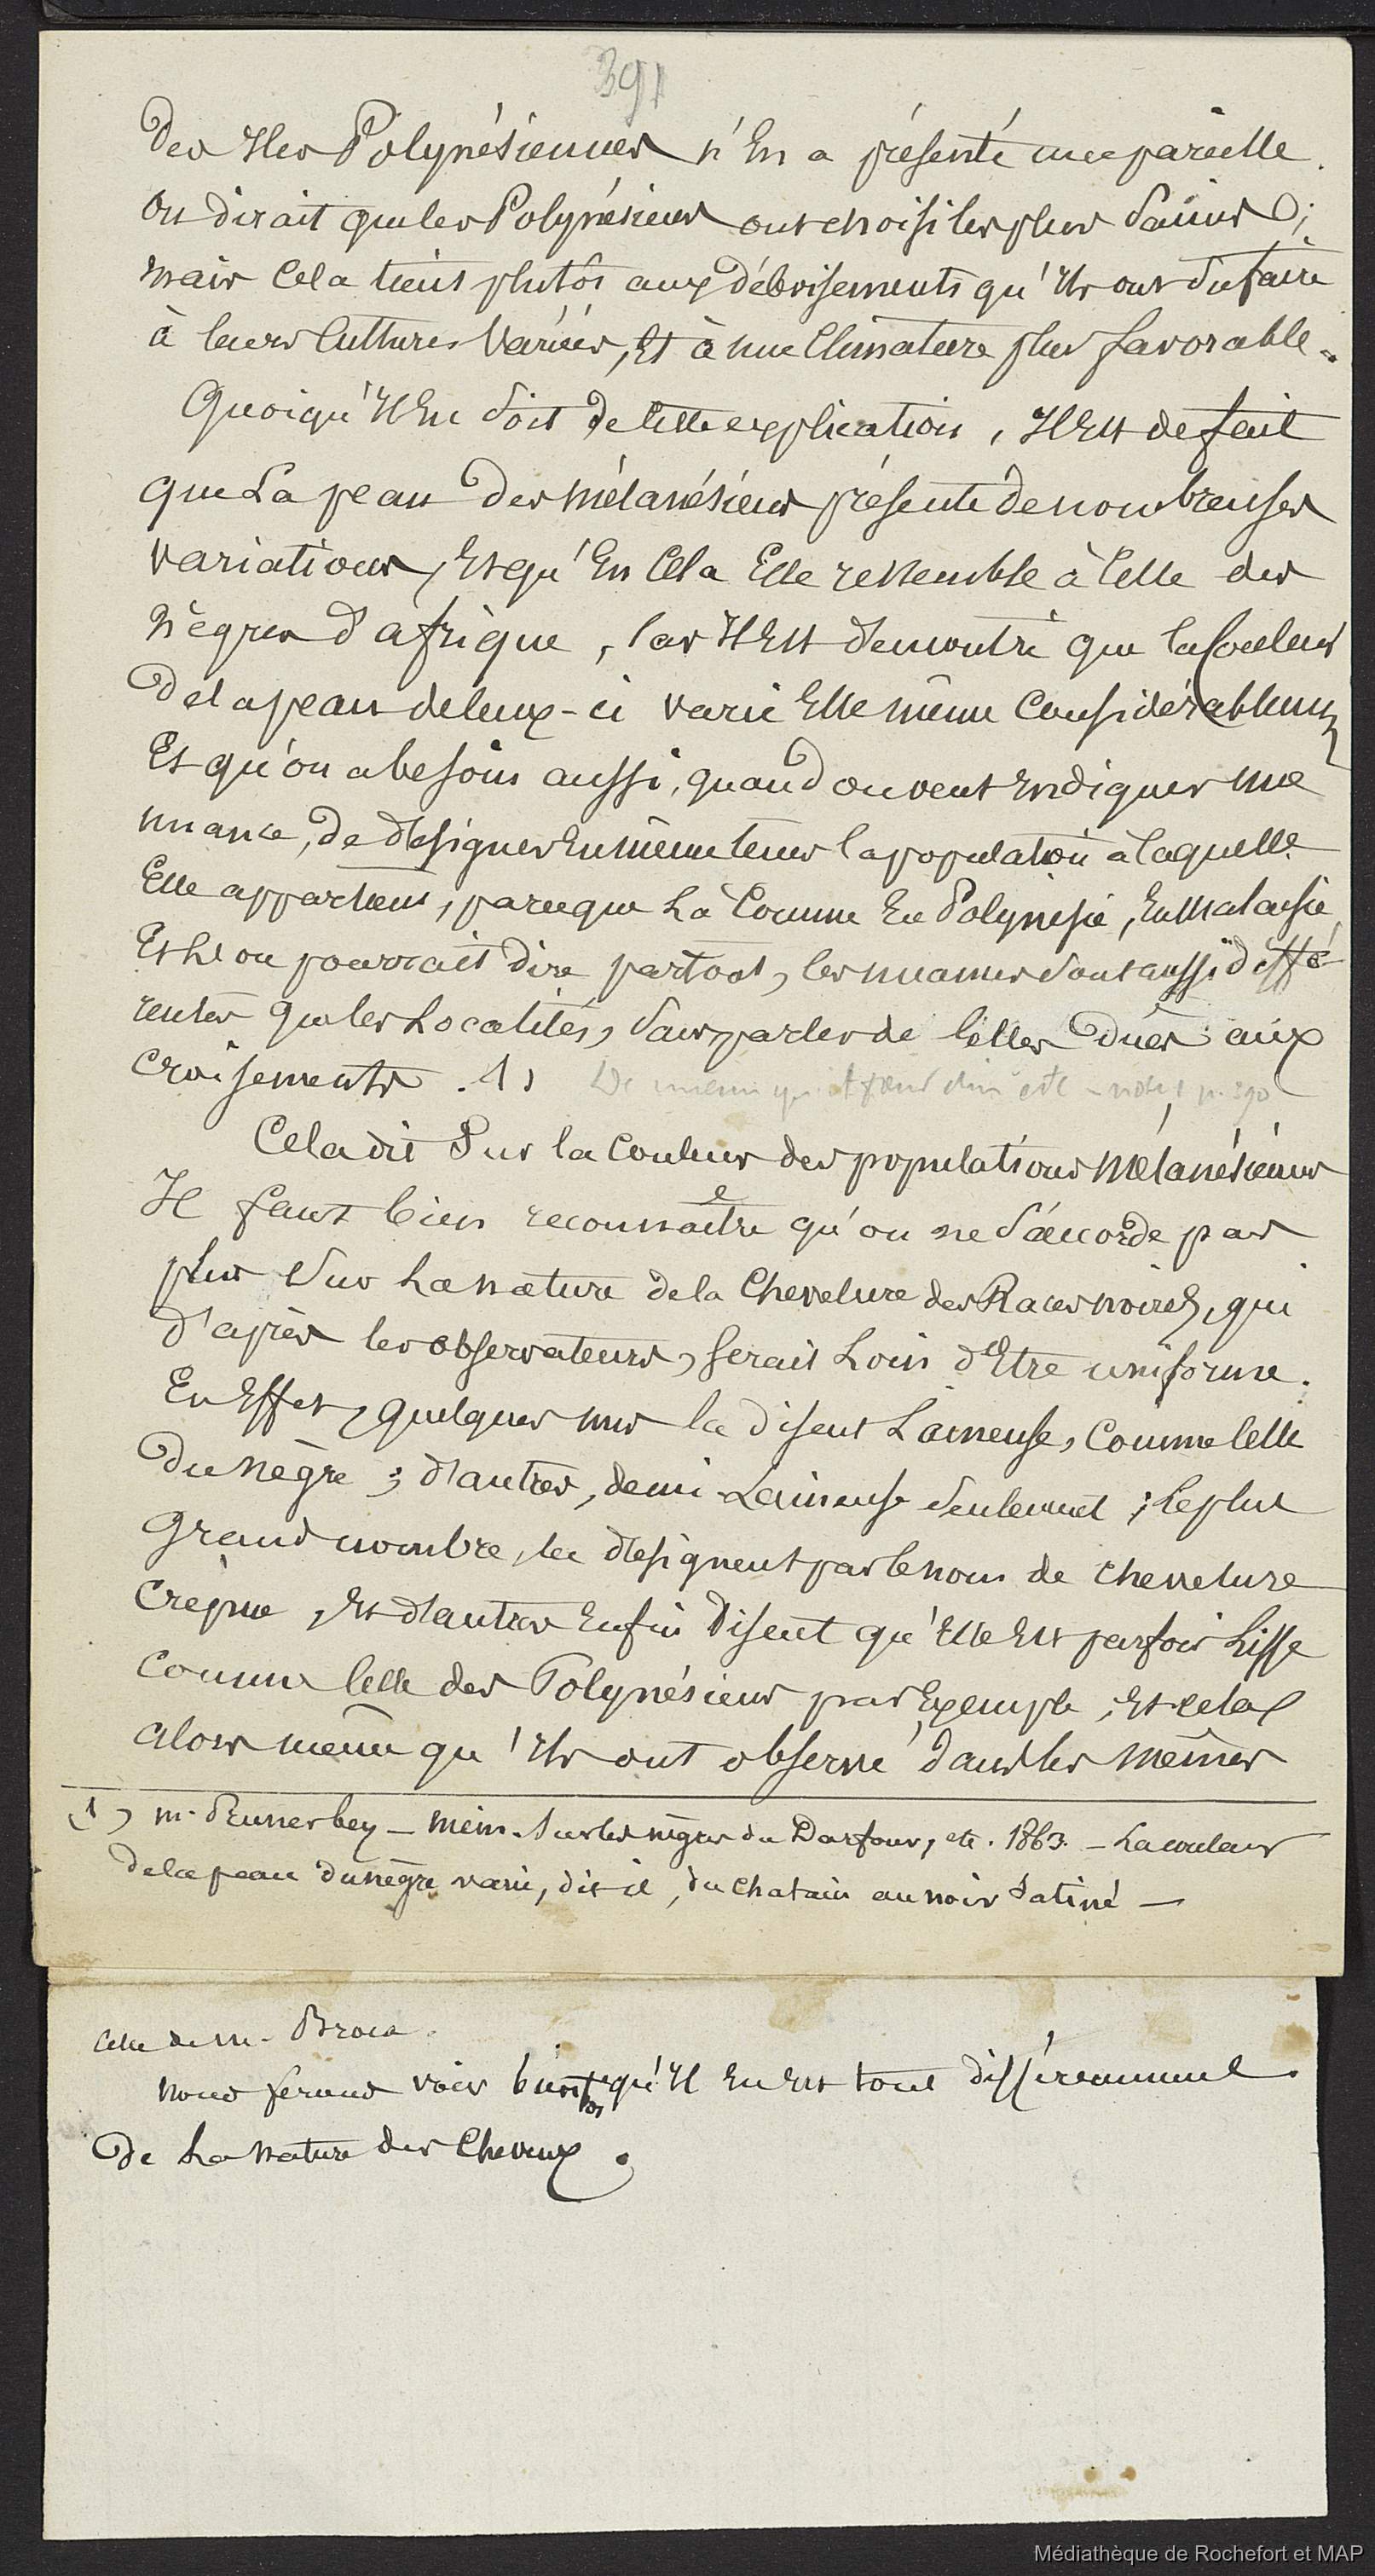 391
Des Iles Polynésiennes n'En a présenté une pareille.
On dirait que les Polynésiens ont choisi les plus Saines ;
mais Cela tient plutôt aux déboisements qu'Ils ont du faire
à leurs Cultures Variées, Et à une Climature plus favorable.
Quoiqu'Il En Soit de Cette explication, Il Est de fait
que La peau des mélanésiens présente de nombreuses
variations, Et qu'En Cela Elle ressemble à Celle des
Nègres d'afrique, Car Il Est démontré que la Couleur
De la peau de Ceux-ci varie Elle même Considérablement
Et qu'on a besoin aussi, quand on veut Indiquer une
nuance, de désigner En même tems la population à laquelle
Elle appartient, parceque Là Comme En Polynésie, En Malaisie,
Et L'on pourrait dire partout, les nuances Sont aussi diffé-
rentes que les Localités, Sans parler de Celles Dues aux
Croisements. (1) De même note 1 p. 390
Cela dit Sur la Couleur des populations Mélanésiennes
Il faut bien reconnaitre qu'on ne S'accorde pas
plus Sur La nature de la Chevelure des Races noires, qui
d'après les observateurs, Serait Loin d'Etre uniforme.
En Effet, quelques uns la disent Laineuse, Comme Celle
Du Nègre ; d'autres, demi-Laineuse Seulement ; Le plus
Grand nombre, la désignent par le nom de Chevelure
Crépue, Et d'autres Enfin Disent qu'Elle Est parfois Lisse
Comme Celle des Polynésiens par Exemple, Et cela
alors même qu'Ils ont observé dans les mêmes
(1) m. Pruner bey _ Mém. Sur les nègres du Darfour, etc. 1863. _ La couleur
De la peau du nègre varie, dit-il, du Chatain au noir Satiné _
Celle de M. Broca.
nous ferons voir bientôt qu'Il En Est tout différemment
De La Nature des Cheveux.
Médiathèque de Rochefort et MAP